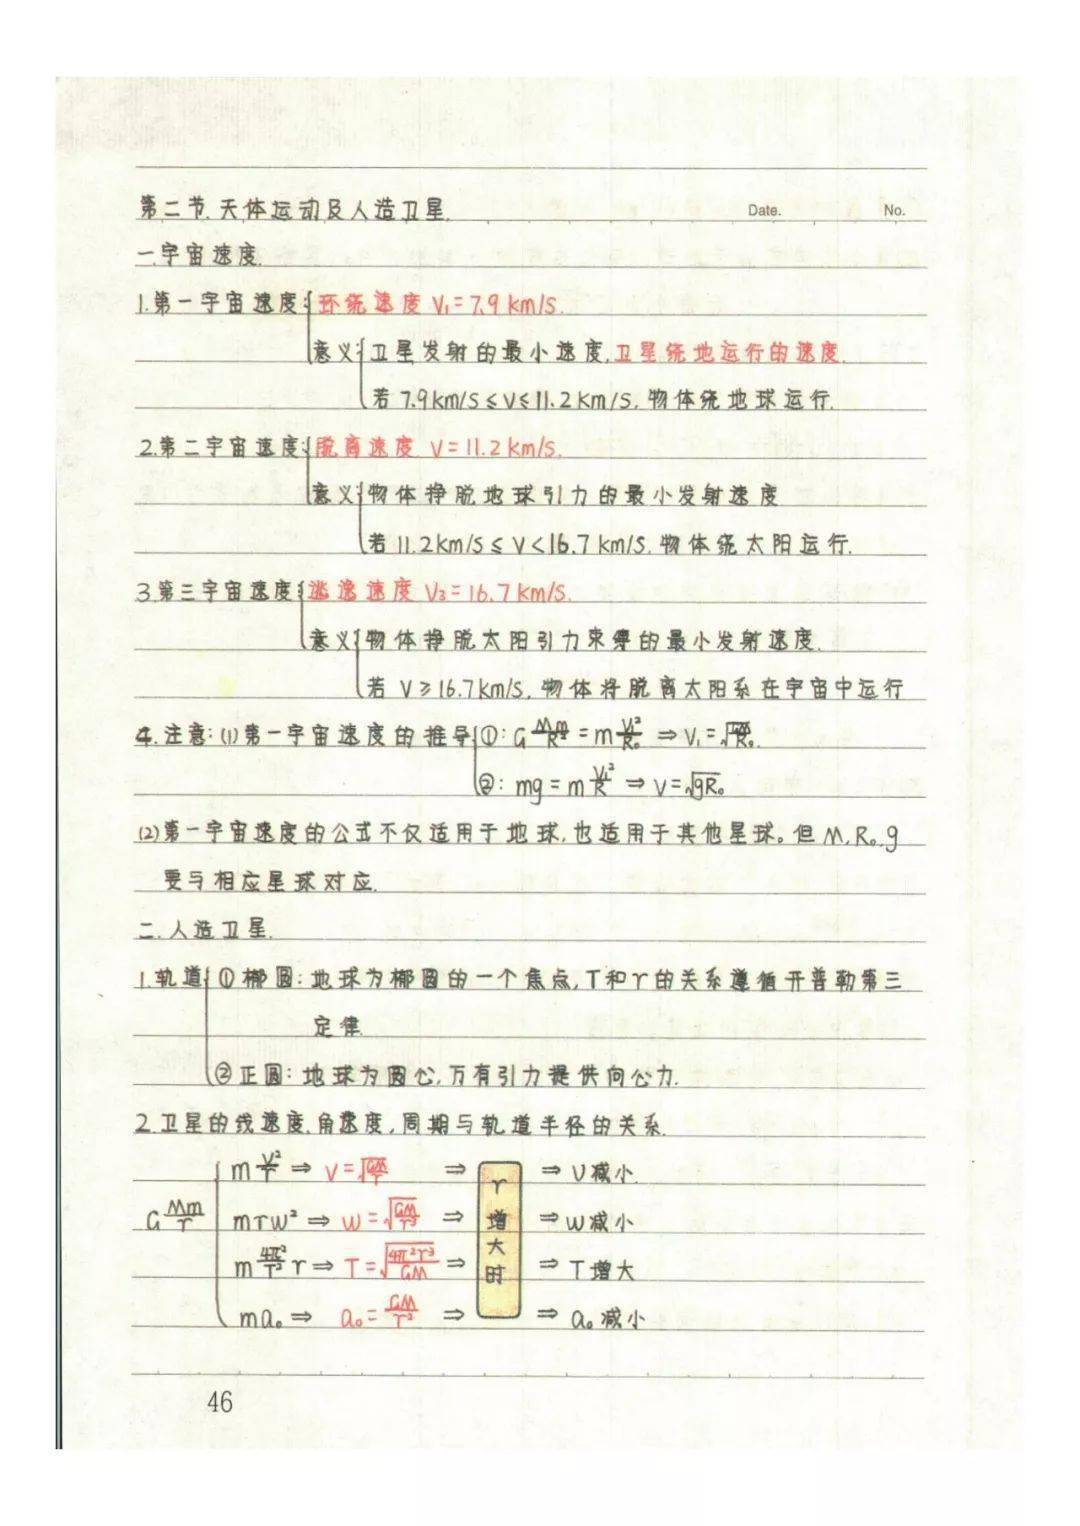 第二节.天体运动及人造卫星. Date. No.
一.宇宙速度.
1.第一宇宙速度:{环绕速度 V₁=7.9 km/s.
意义:{卫星发射的最小速度.卫星绕地运行的速度.
若 7.9km/s≤V≤11.2km/s.物体绕地球运行.
2.第二宇宙速度:{脱离速度 V=11.2km/s.
意义:{物体挣脱地球引力的最小发射速度
若11.2km/s≤V<16.7km/s.物体绕太阳运行.
3.第三宇宙速度:{逃逸速度 V₃=16.7km/s.
意义:{物体挣脱太阳引力束缚的最小发射速度.
若 V≥16.7km/s,物体将脱离太阳系在宇宙中运行
4.注意:(1)第一宇宙速度的推导{①: G Mm/R² = m V₁²/R₀ ⇒ V₁=√(GM/R₀).
②: mg = m V₁²/R ⇒ V=√(gR₀)
(2)第一宇宙速度的公式不仅适用于地球,也适用于其他星球。但M,R₀,g
要与相应星球对应.
二.人造卫星.
1.轨道{①椭圆:地球为椭圆的一个焦点,T和r的关系遵循开普勒第三
定律.
②正圆:地球为圆心,万有引力提供向心力.
2.卫星的线速度.角速度,周期与轨道半径的关系.
G Mm/r { m V²/r ⇒ V=√(GM/r) ⇒ r增大时 ⇒ V减小.
mrw² ⇒ w=√(GM/r³) ⇒ ⇒ w减小
m 4π²/T² r ⇒ T=√(4π²r³/GM) ⇒ ⇒ T增大
ma₀ ⇒ a₀=GM/r² ⇒ ⇒ a₀减小
46